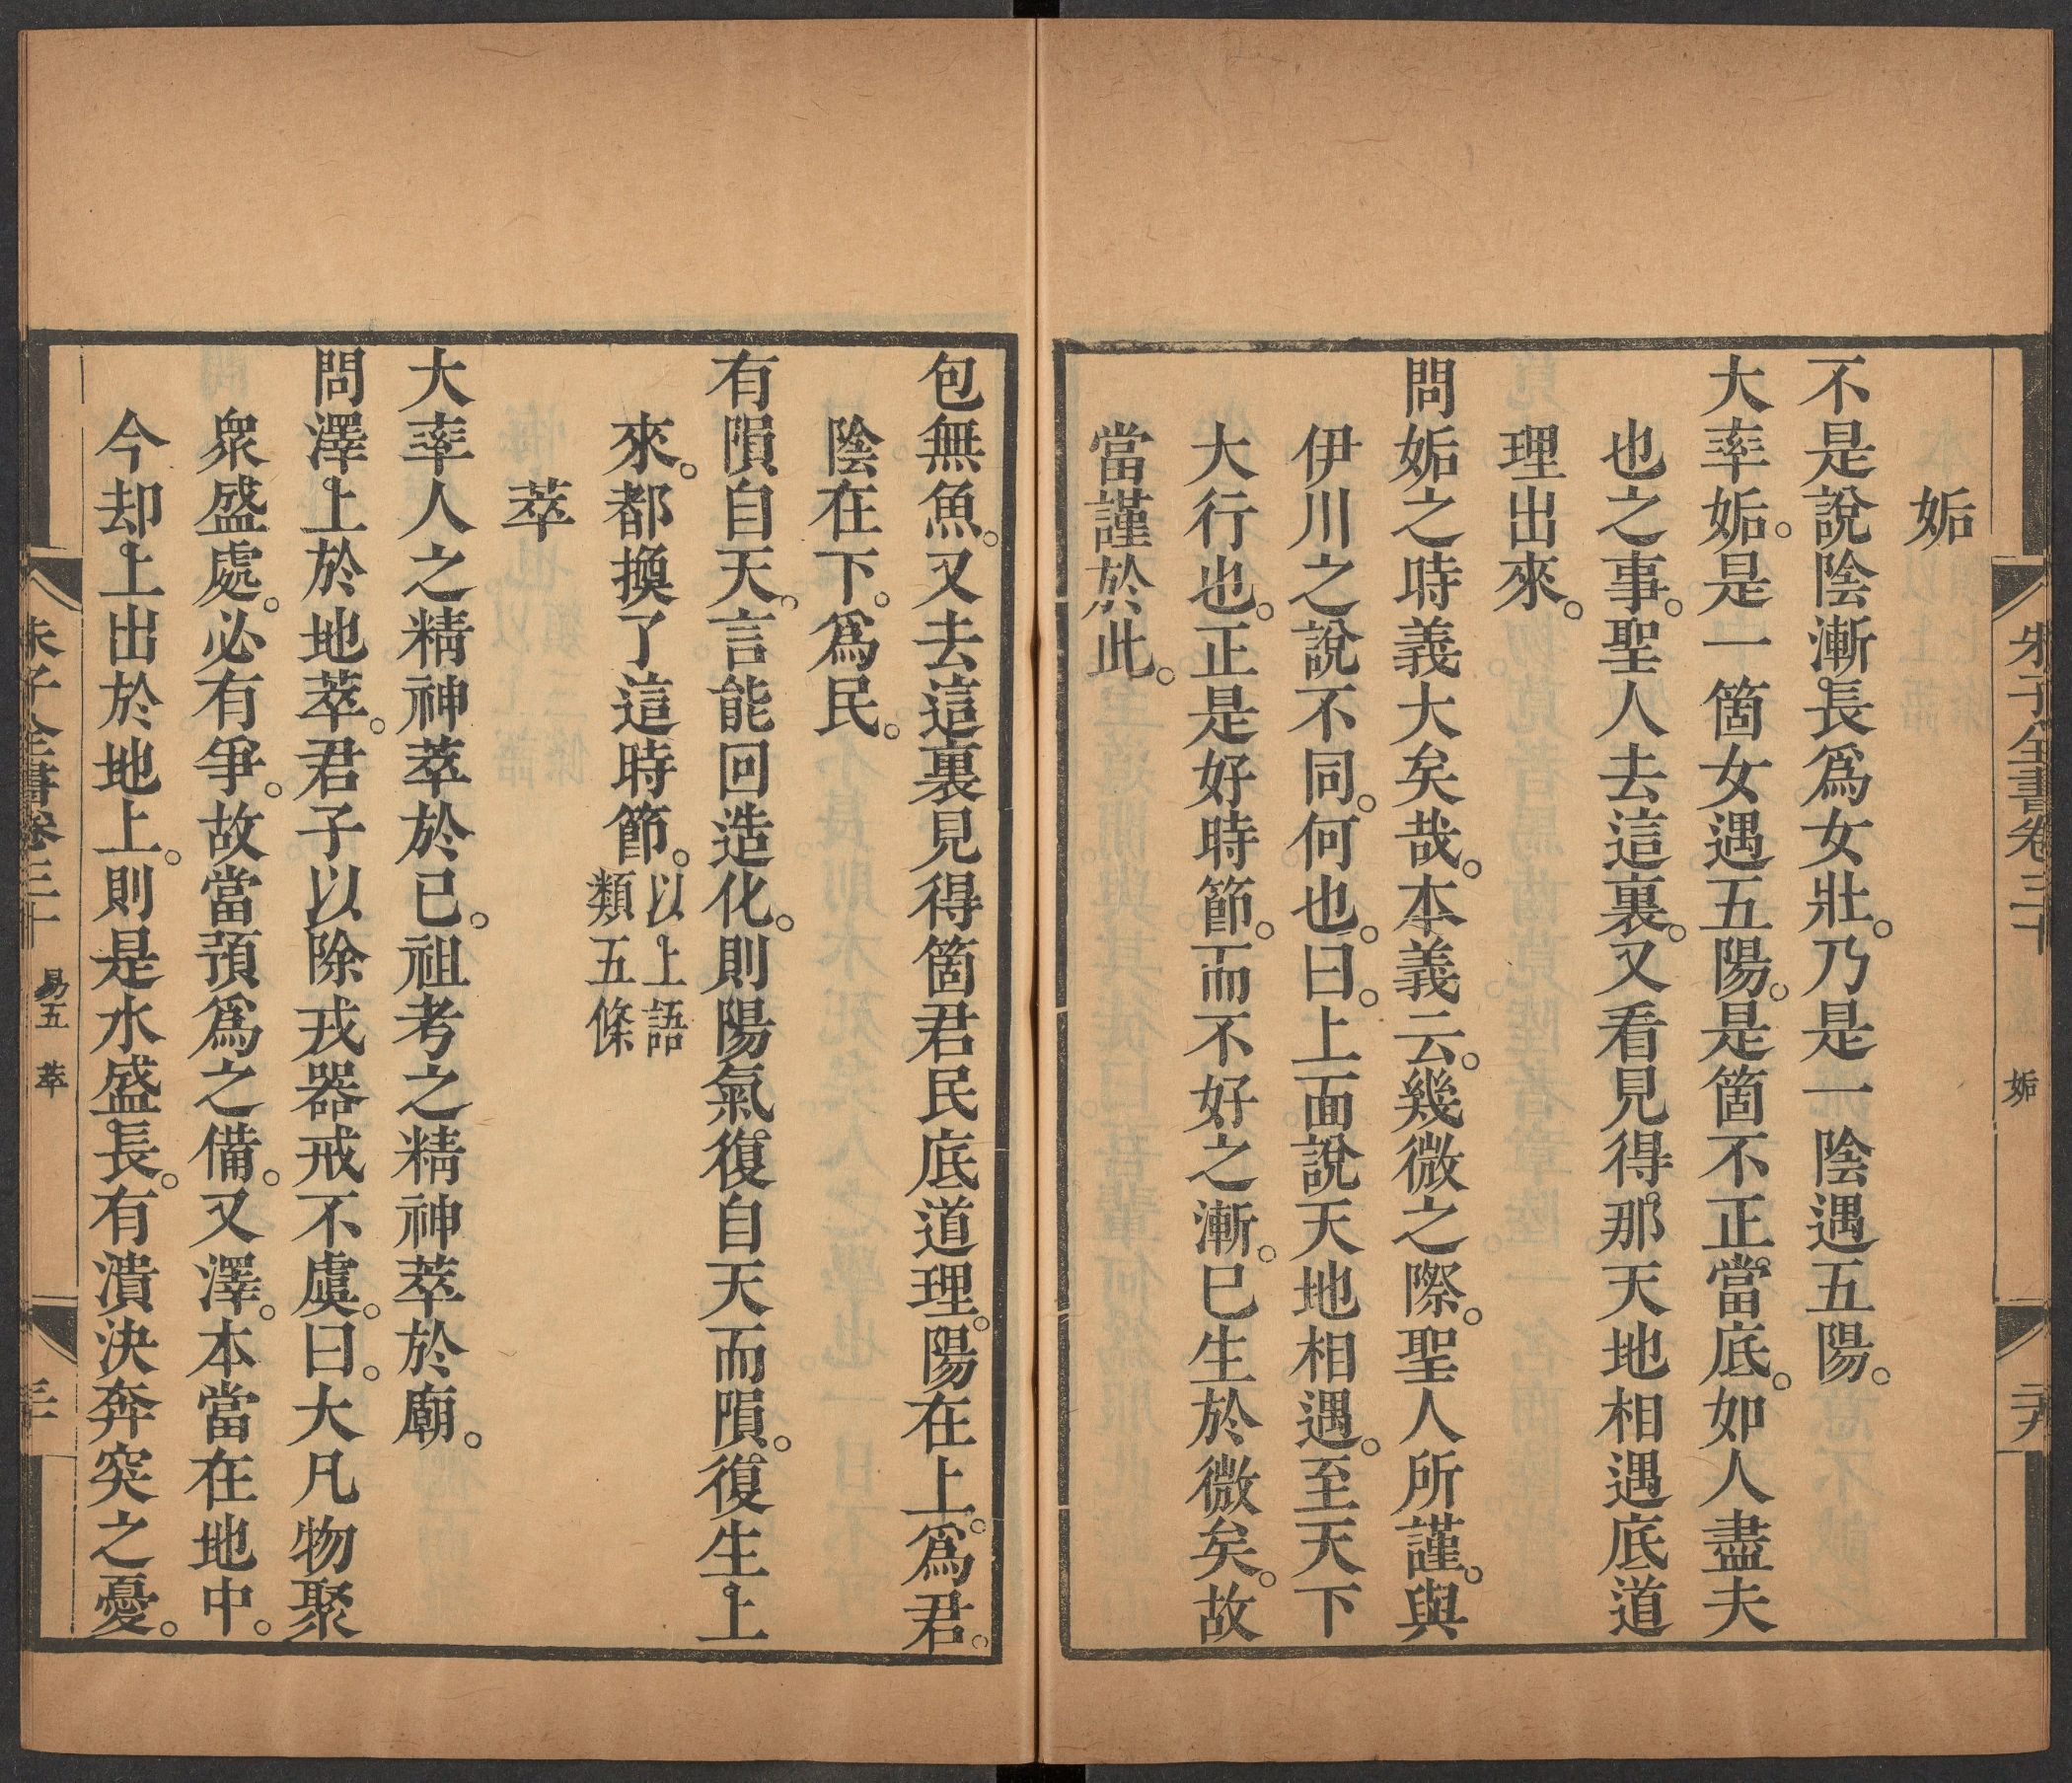 姤
不是說陰漸長爲女壯。乃是一陰遇五陽。
大率姤。是一箇女遇五陽。是箇不正當底。如人盡夫
也之事。聖人去這裏。又看見得那天地相遇底道
理出來。
問姤之時義大矣哉。本義云。幾微之際。聖人所謹。與
伊川之說不同。何也。曰。上面說天地相遇。至天下
大行也。正是好時節。而不好之漸。已生於微矣。故
當謹於此。
朱子全書卷三十
姤
二十九
包無魚。又去這裏見得箇君民底道理。陽在上。爲君。
陰在下。爲民。
有隕自天。言能回造化。則陽氣復自天而隕。復生上
來。都換了這時節。以上語
類五條
萃
大率人之精神萃於已。祖考之精神萃於廟。
問澤上於地萃。君子以除戎器戒不虞。曰。大凡物聚
衆盛處。必有爭。故當預爲之備。又澤。本當在地中。
今却上出於地上。則是水盛長。有潰決奔突之憂。
朱子全書卷三十
易五 萃
三十